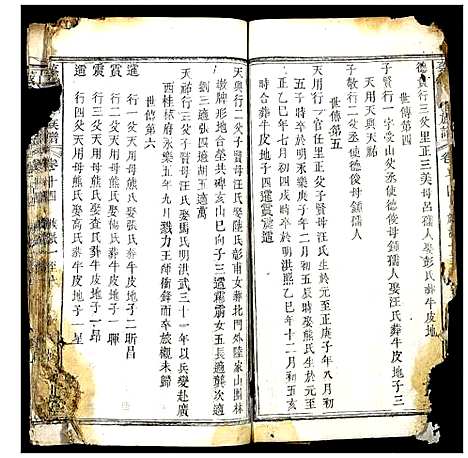 德貴行三父里正三美母呂孺人娶彭氏葬牛皮地
世傳第四
子賢行一字愛山父丞使德俊母鍾孺人娶汪氏葬牛皮地子三
天用天與天祐
子敬行二父丞使德俊母鍾孺人
世傳第五
天用行一官任里正父子賢母汪氏生於元至正庚子年八月初
五子時卒於明永樂庚子年十月初五辰時娶熊氏生於元至
正乙巳年七月初四戌時卒於明洪熙乙巳年十一月初五亥
時合葬牛皮地子四暹震震遷
天與行二父子賢母汪氏娶陸氏彰甫女葬北門外陸家山園林
墩牌形地合塋共碑亥山巳向子三暹霖霱女五長適樊次適
劉三適張四適胡五適萬
天祐行三父子賢母汪氏娶馬氏明洪武三十一年以兵變赴廣
西桂林府永樂五年九月戮力王師衝鋒而卒故櫬未歸
世傳第六
暹 行一父天用母熊氏娶張氏葬牛皮地子二昕昌
震 行二父天用母熊氏娶查氏葬牛皮地子一昂
行三父天用母熊氏娶高氏葬牛皮地子一暉
行四父天用母熊氏 氏葬牛皮地子一星
族譜 卷十四